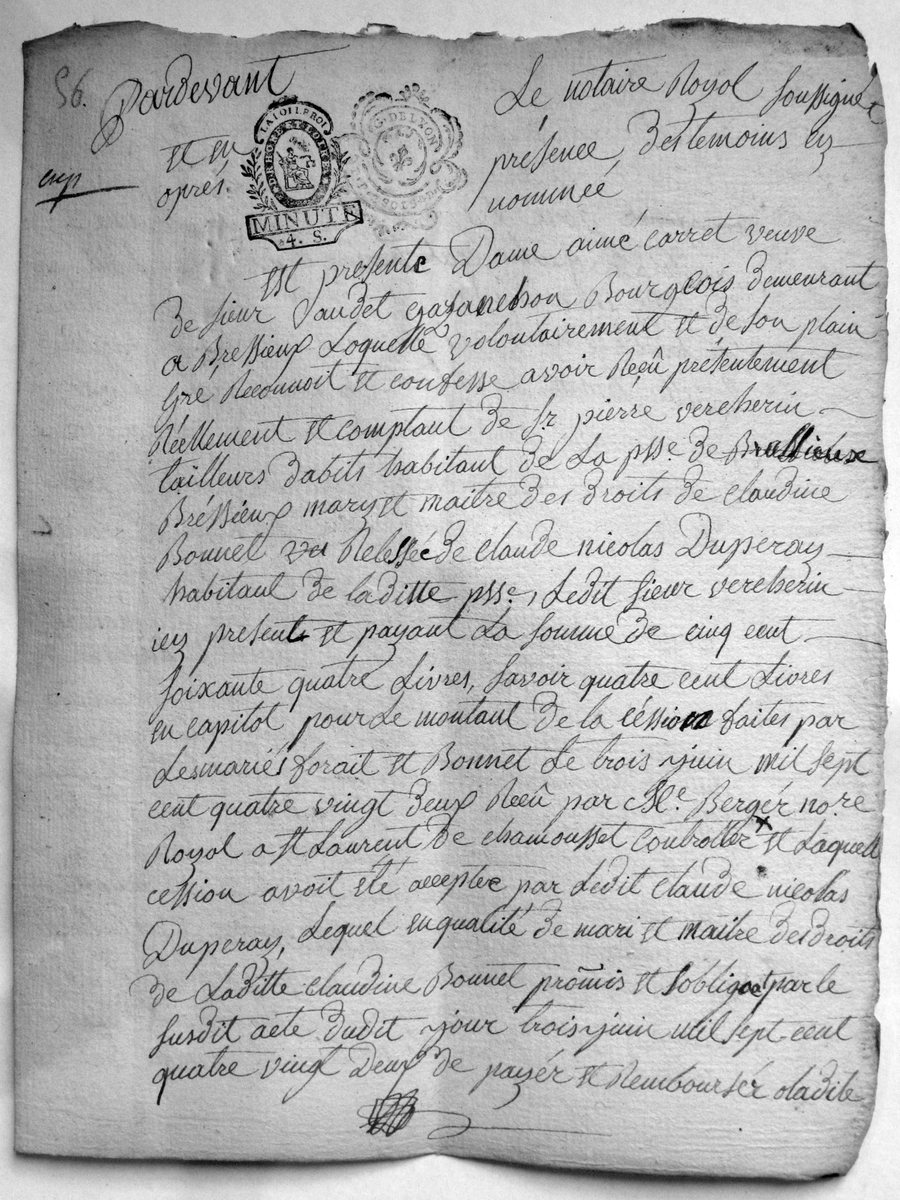 56.
Pardevant
Le notaire Royal soussigné
et en
présence des temoins cy
exp
apres
nommée
LA LOI LE ROI
G. DE LYON
MINUTE
4. S.
Est presente Dame aimé carret veuve
de sieur Bourgeois demeurant
a Bressieux Loquelle volontairement et de son plain
Gré Reconnoit et confesse avoir Reçû présentement
Réellement et comptant de Sr pierre vercherin
tailleurs dabits habitant de La psse de
Bréssieux mary et maitre des droits de claudine
Bonnet de claude nicolas Duperay
habitant de laditte psse, Ledit sieur vercherin
icy present et payant La somme de cinq cent
soixante quatre Livres, savoir quatre cent Livres
en capitol pour Le montant de la céssion faites par
Les mariés forait et Bonnet Le trois juin mil sept
cent quatre vingt deux Reçû par Me Bergér nore
Royal a St Laurent de chamousset controller et Laquell
cession avoit eté acceptee par Ledit claude nicolas
Duperay, Lequel en qualité de mari et maitre des droits
de Laditte claudine Bonnet promis et sobligea par le
susdit acte dudit jour trois juin mil sept cent
quatre vingt Deux de payér et Remboursér aladite